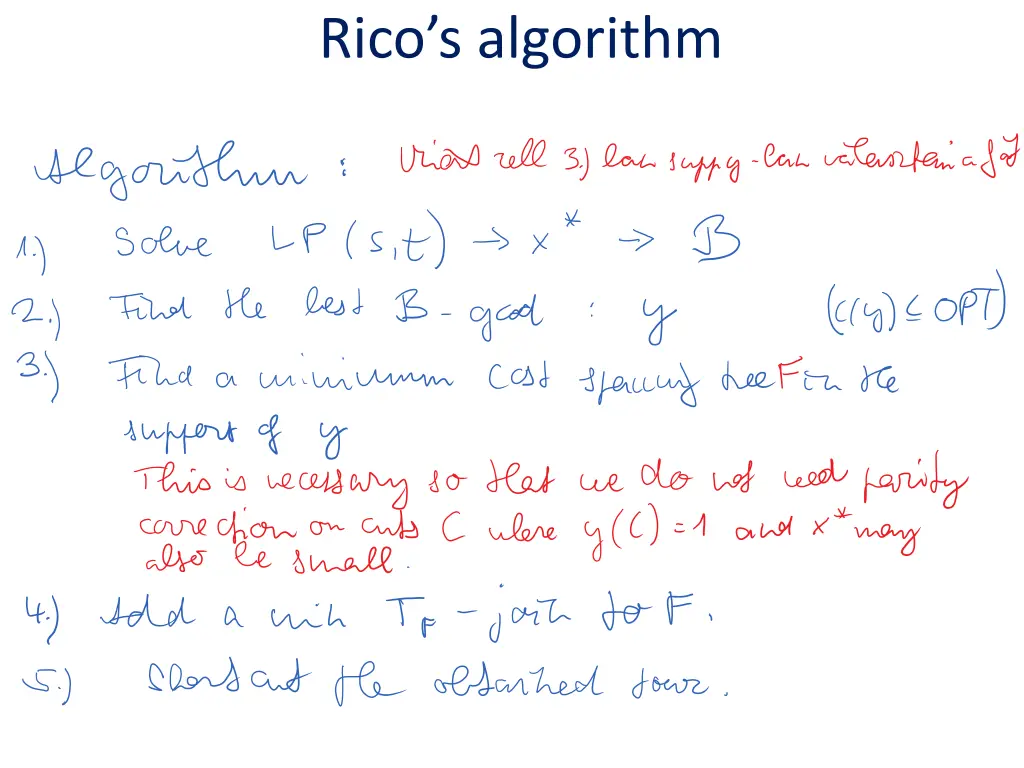 Rico's algorithm
Algorithm :
3.)
1.) Solve LP (s,t) → x* → B
2.) Find the best B-good : y (c(y) ≤ OPT)
3.) Find a minimum cost spanning tree F in the
support of y
This is necessary so that we do not need parity
correction on cuts C where y(C) = 1 and x* may
also be small.
4.) Add a min T_F - join to F.
5.) Shortcut the obtained tour.